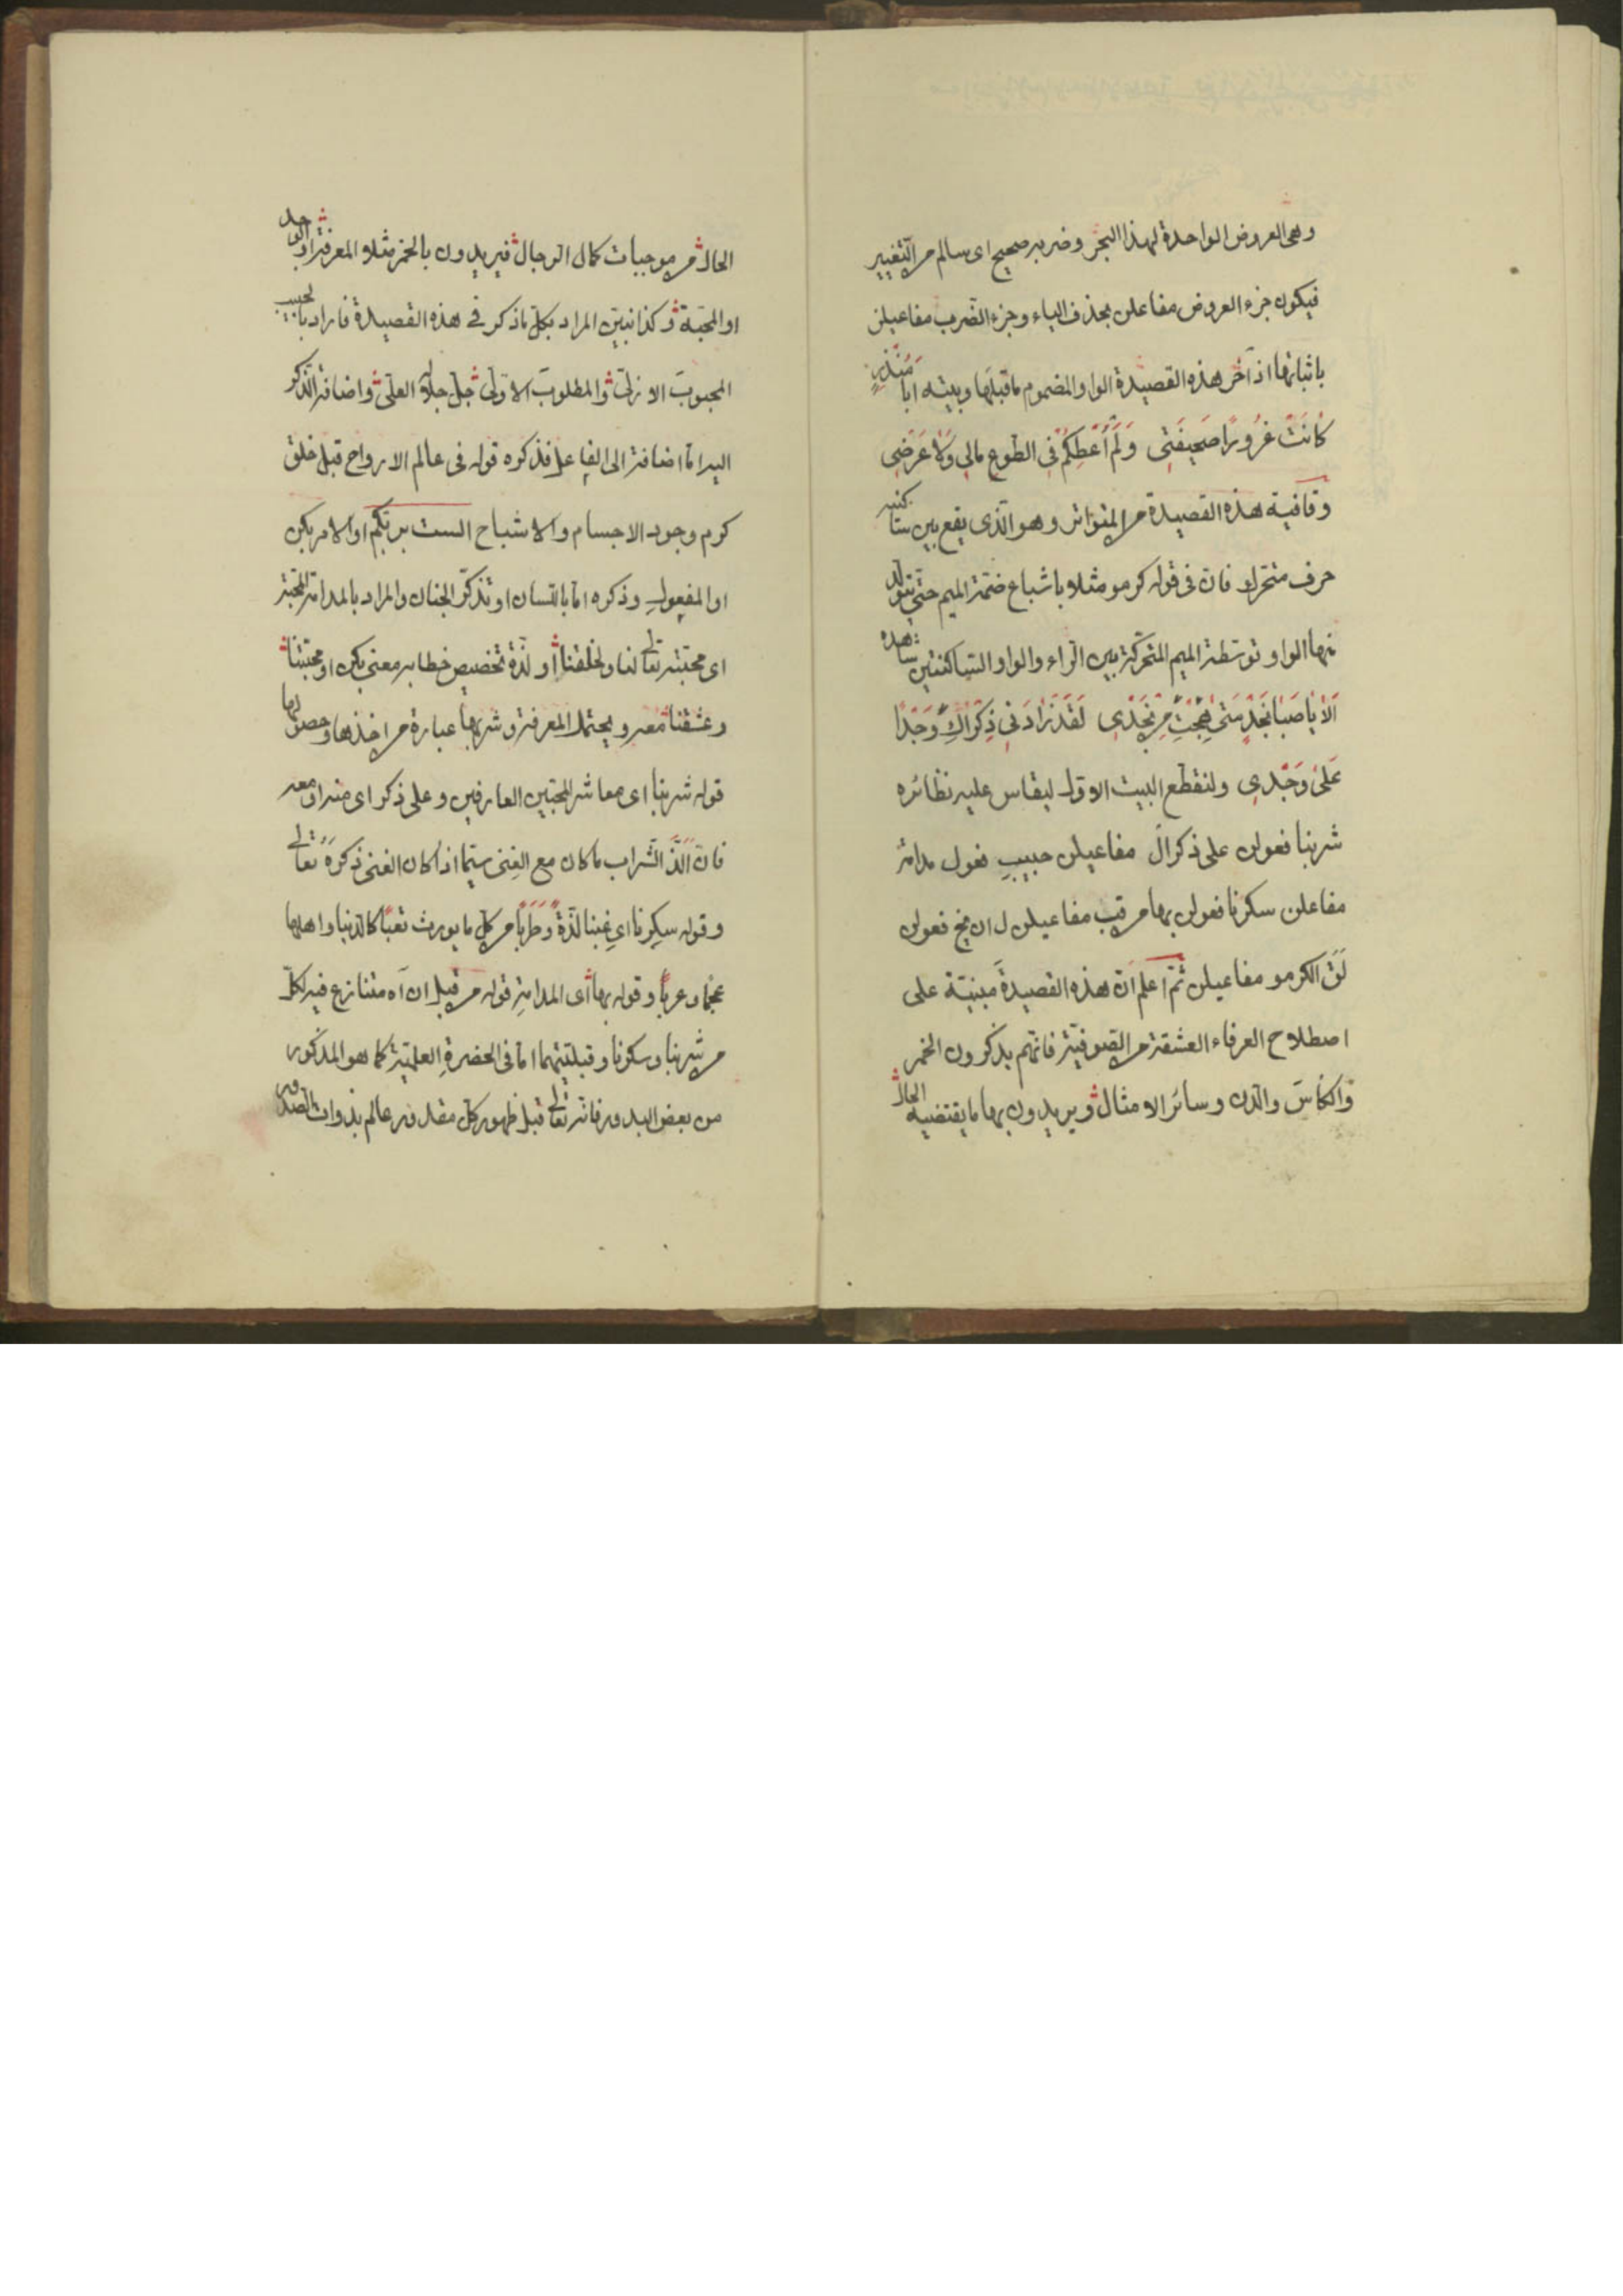 وهى العروض الواحدة لهذا البحر وضربه صحيح اى سالم من التغيير
فيكون جزء العروض مفاعلن بحذف الياء وجزء الضرب مفاعيلن
باثباتها اذ آخر هذه القصيدة الواو المضموم ما قبلها وبيته ابا مُنْذِرٍ
كَانَتْ غُرُورًا صَحِيفَتِى وَلَمْ أُعْطِكُمْ فِى الطَّوعِ مَالِى وَلَا عَرْضِى
وقافية هذه القصيدة من المتواتر وهو الّذى يقع بين ساكنيه
حرف متحرك فان فى قوله كرمو مثلا باشباع ضمّة الميم حتّى يتولّد
منها الواو توسّطت الميم المتحركة بين الراء والواو الساكنتين شاهده
اَلَا يَا صَبَا نَجْدٍ مَتَى هِجْتِ مِنْ نَجْدِى لَقَدْ زَادَنِى ذِكْرَاكِ وَجْدًا
عَلَى وَجْدِى ولنقطع البيت الاول ليقاس عليه نظائره
شربنا فعولن على ذكرال مفاعيلن حبيبِ فعول مدامة
مفاعلن سكرنا فعولن بها من قب مفاعيلن ل ان يخ فعولن
لَقَ الكرمو مفاعيلن ثمّ اعلم انّ هذه القصيدة مبنيّة على
اصطلاح العرفاء العشقة من الصوفيّة فانّهم يذكرون الخمر
والكأسَ والدن وسائر الامثال ويريدون بها ما يقتضيه الحال
الحال من موجبات كمال الرجال فيريدون بالخمر مثلا المعرفة او الوجد
او المحبّة وكذا نبيّن المراد بكلّ ما ذكر فى هذه القصيدة فاراد بالحبيب
المحبوبَ الازلىّ والمطلوبَ الاوّلىّ جلّ جلاله العلىّ واضافة الذكر
اليه امّا اضافة الى الفاعل فذكره قوله فى عالم الارواح قبل خلق
كرم وجود الاجسام والاشباح الست بربّكم او الامر بكن
او المفعول وذكره امّا باللّسان او تذكّر الجنان والمراد بالمدامة المحبّة
اى محبّته تعالى لنا ولخلقنا او لذّة تخصيص خطابه معنى بكن او محبّتنا
وعشقنا معه ويحتمل المعرفة وشربها عبارة من اخذها وحصولها
قوله شربنا اى معاشر المحبّين العارفين وعلى ذكر اى منه او معه
فانّ اَلَذَّ الشراب ما كان مع الغنى سيّما اذا كان الغنى ذِكرَهُ تعالى
وقوله سكرنا اى غبنا لذّةً وَطَرَبًا من كلّ ما يورث تعبًا كالدنيا واهلها
عجمًا وعربًا وقوله بها اى المدامةِ قوله من قبل ان آه متنازع فيه لكلّ
من شربنا وسكرنا وقبليّتهما امّا فى الحضرةِ العلميّة كما هو المذكور
من بعض البدور فانه تعالى قبل ظهور كلّ مقدور عالم بذوات الصدور